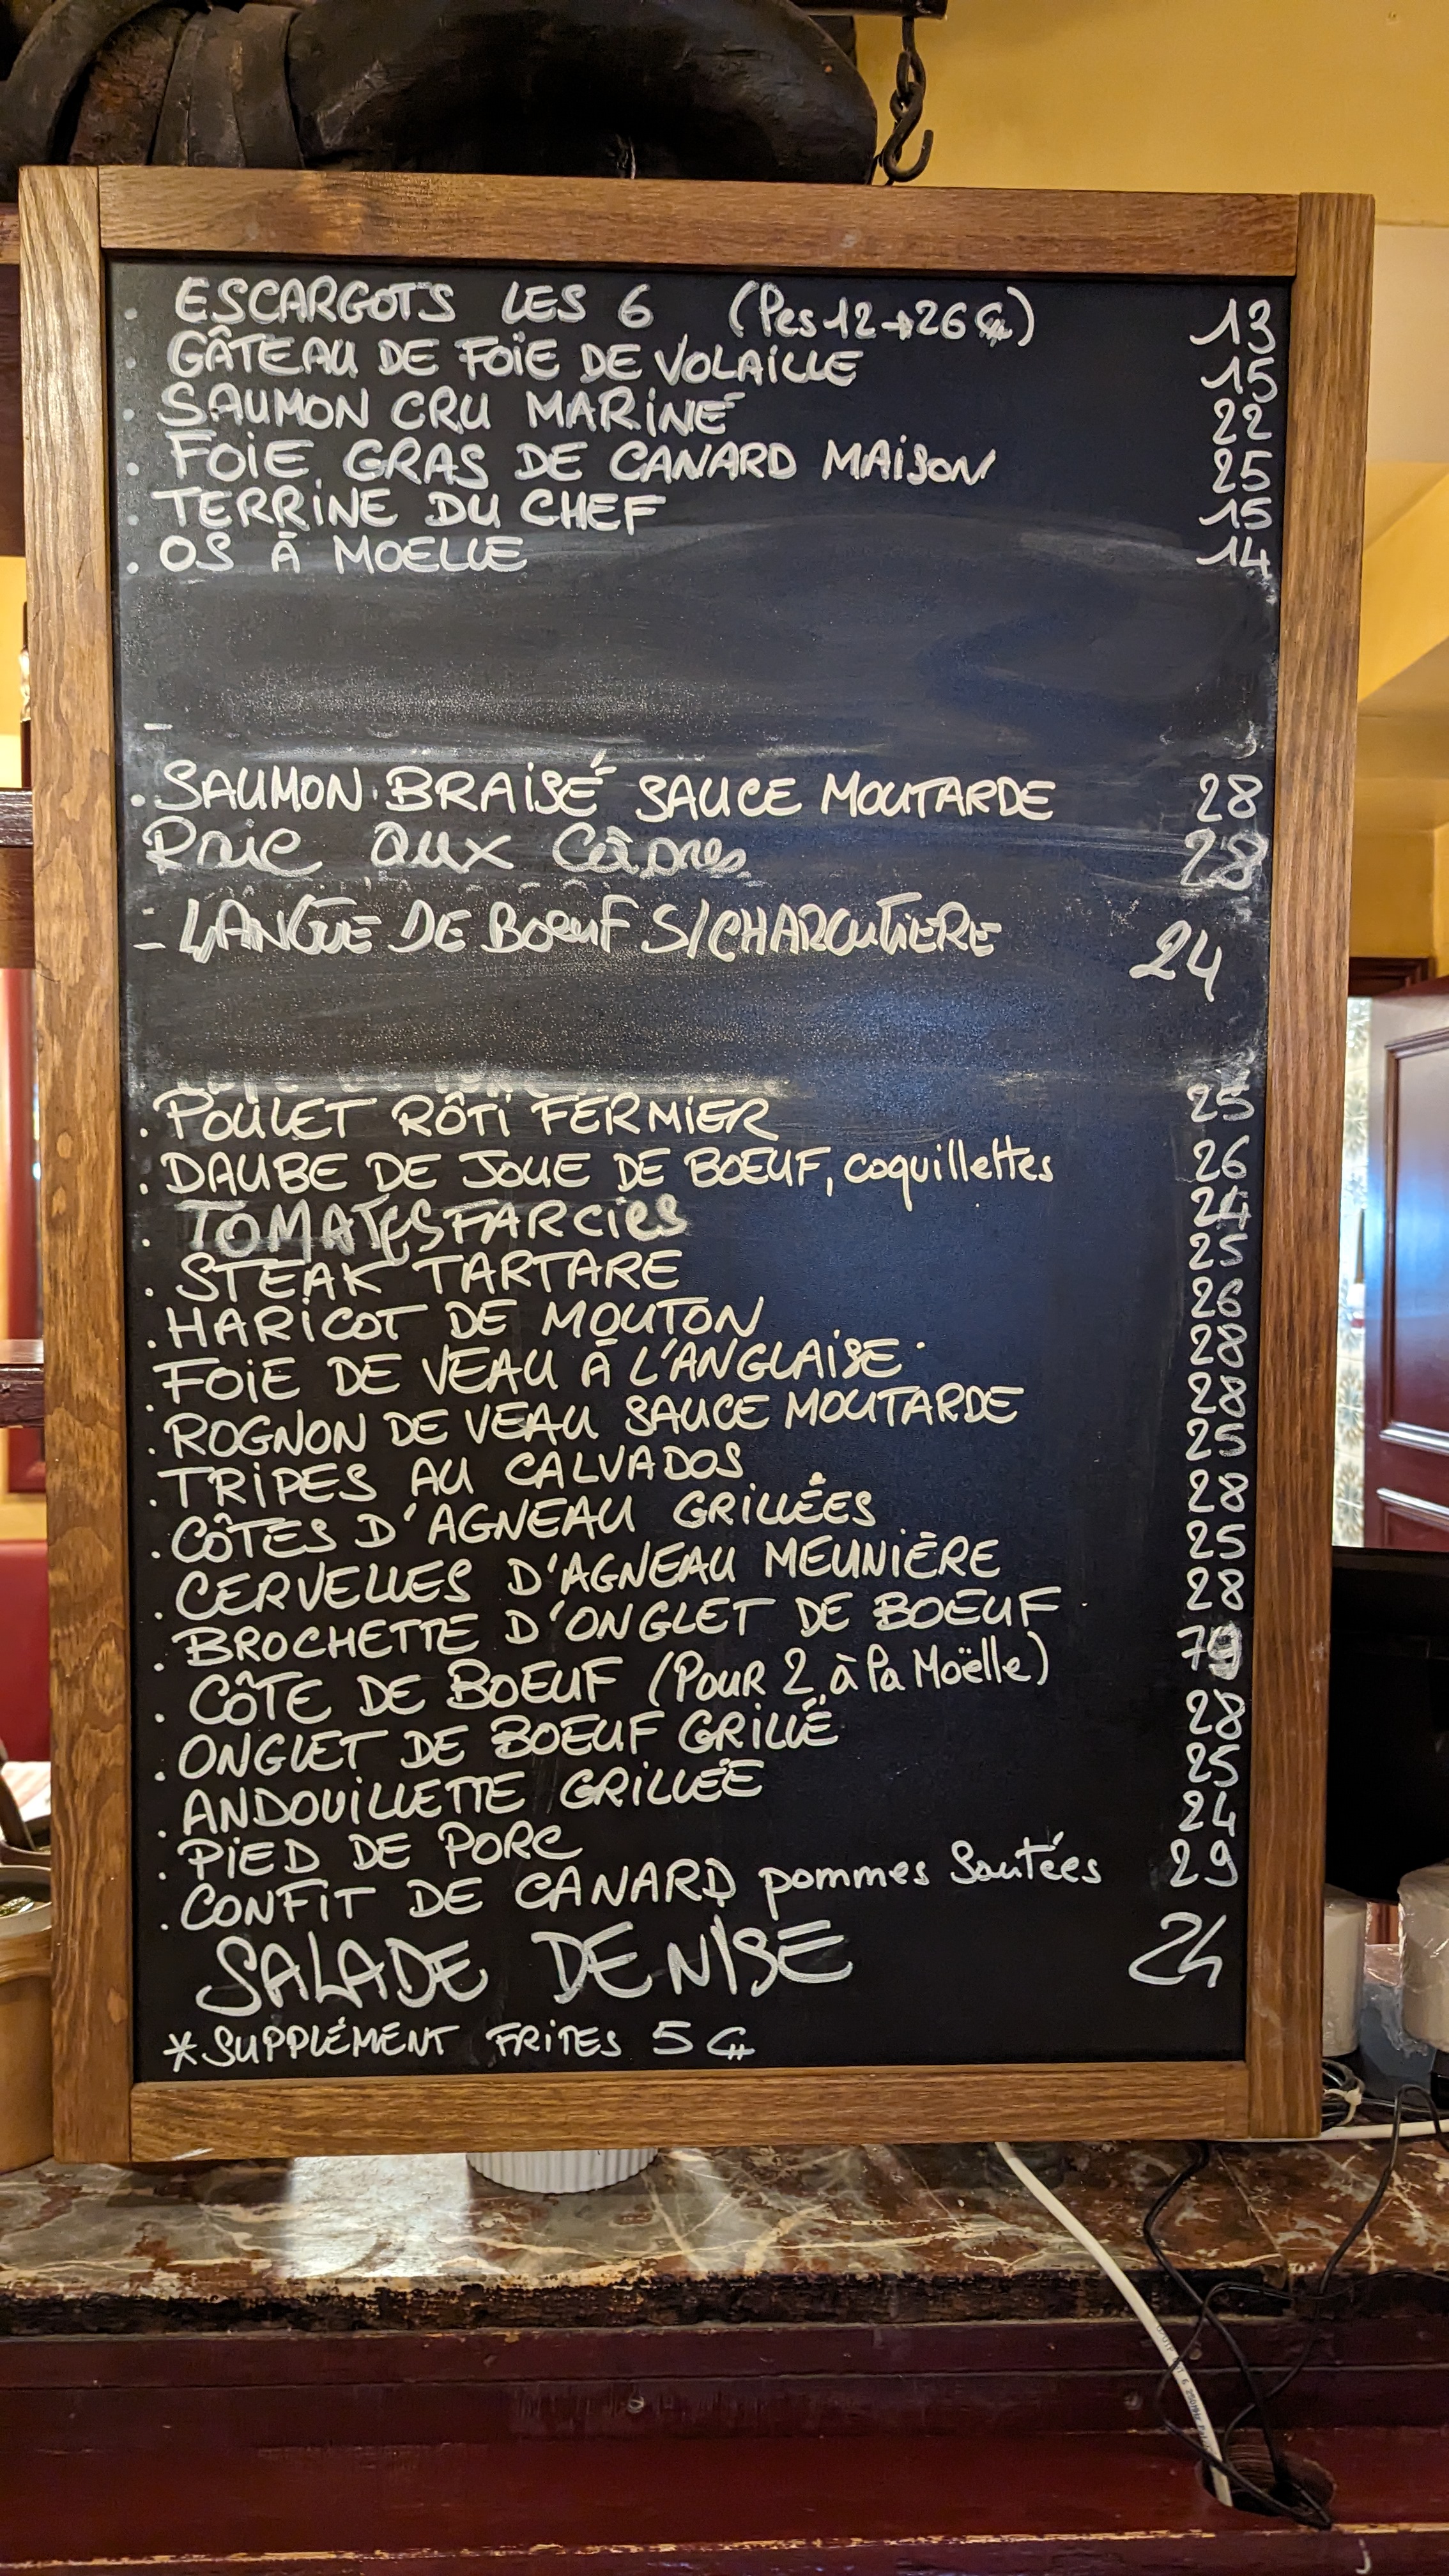 . ESCARGOTS LES 6 (les 12 → 26 €) 13
. GÂTEAU DE FOIE DE VOLAILLE 15
. SAUMON CRU MARINÉ 22
. FOIE GRAS DE CANARD MAISON 25
. TERRINE DU CHEF 15
. OS À MOELLE 14
. SAUMON BRAISÉ SAUCE MOUTARDE 28
Raie aux Câpres 28
- LANGUE DE BOEUF S/CHARCUTIERE 24
. POULET RÔTI FERMIER 25
. DAUBE DE JOUE DE BOEUF, coquillettes 26
. TOMATES FARCIES 24
. STEAK TARTARE 25
. HARICOT DE MOUTON 26
. FOIE DE VEAU À L'ANGLAISE 28
. ROGNON DE VEAU SAUCE MOUTARDE 28
. TRIPES AU CALVADOS 25
. CÔTES D'AGNEAU GRILLÉES 28
. CERVELLES D'AGNEAU MEUNIÈRE 25
. BROCHETTE D'ONGLET DE BOEUF 28
. CÔTE DE BOEUF (Pour 2 à la Moëlle) 79
. ONGLET DE BOEUF GRILLÉ 28
. ANDOUILLETTE GRILLÉE 25
. PIED DE PORC 24
. CONFIT DE CANARD pommes Sautées 29
SALADE DENISE 24
* SUPPLÉMENT FRITES 5 €